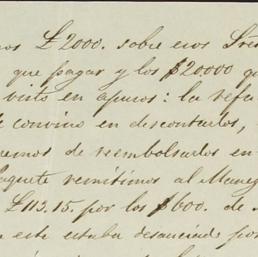 mos £2000. sobre esos Sres
que pagar y los $20.000 que
visto en apuros: la refa
e convino en descontarlos,
remos de reembolsarlos en
aquete remitimos al Maneg
£113.15. por los $600. de
este estaba desauciado por